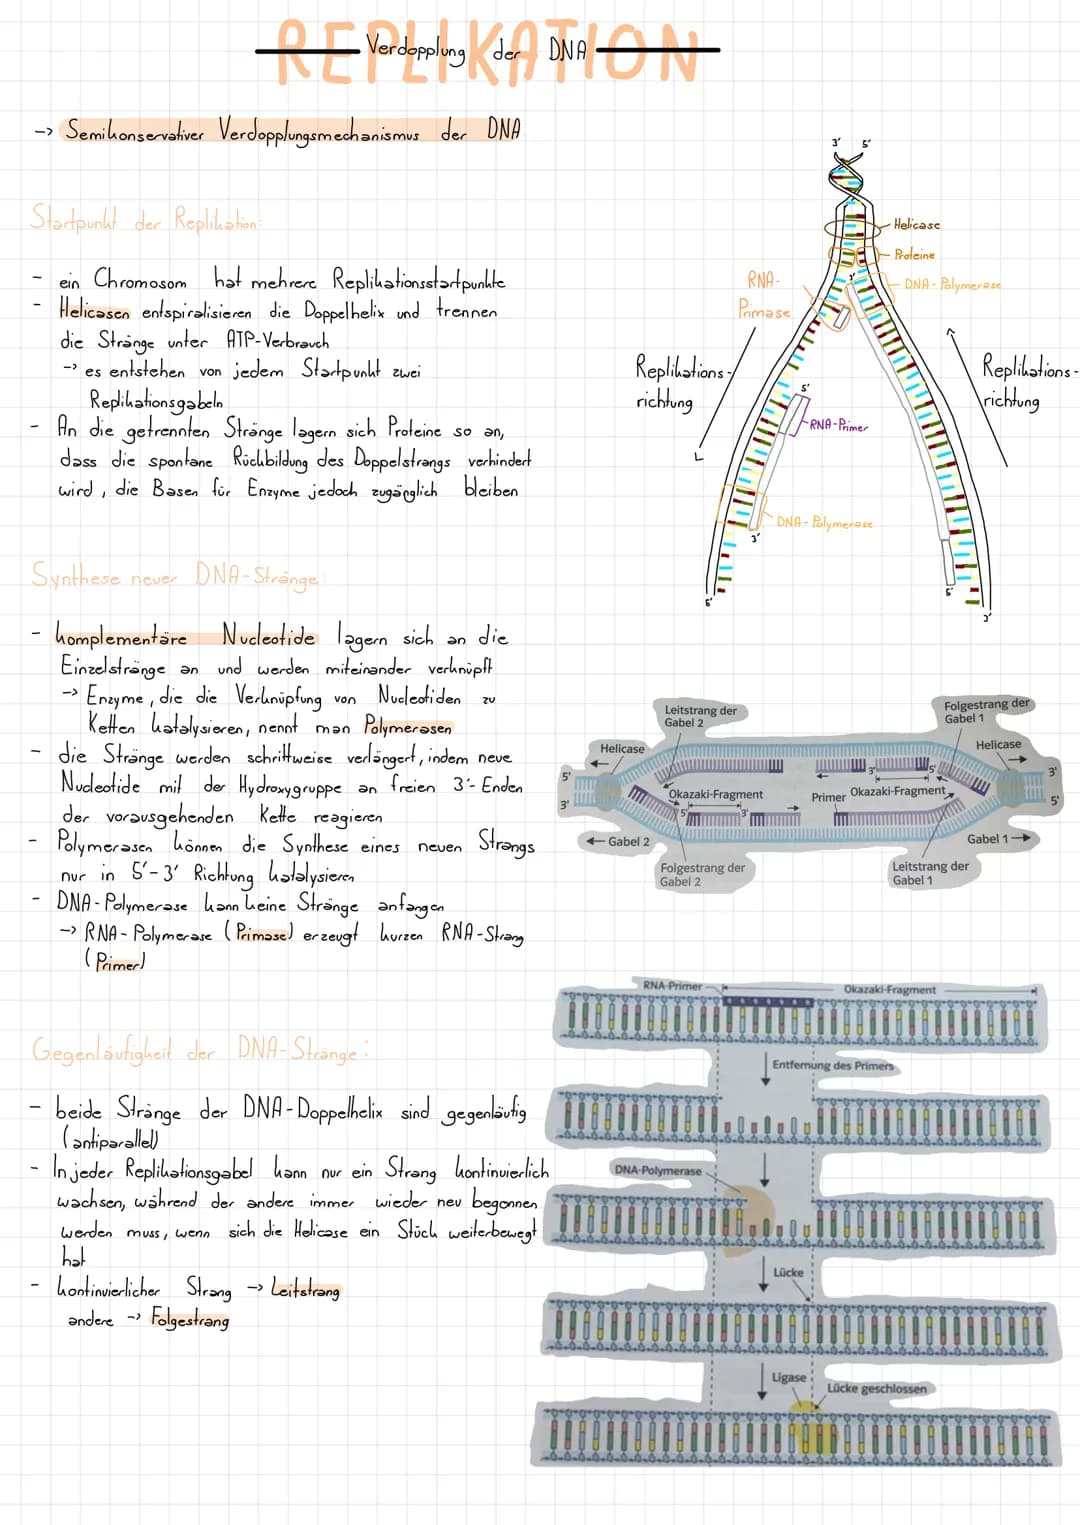 REPLIKATION
Verdopplung der DNA
-> Semikonservativer Verdopplungsmechanismus der DNA
Startpunkt der Replikation:
- ein Chromosom hat mehrere Replikationsstartpunkte
- Helicasen entspiralisieren die Doppelhelix und trennen
die Stränge unter ATP-Verbrauch
-> es entstehen von jedem Startpunkt zwei
Replikationsgabeln
- An die getrennten Stränge lagern sich Proteine so an,
dass die spontane Rückbildung des Doppelstrangs verhindert
wird, die Basen für Enzyme jedoch zugänglich bleiben
Synthese neuer DNA-Stränge:
- komplementäre Nucleotide lagern sich an die
Einzelstränge an und werden miteinander verknüpft
-> Enzyme, die die Verknüpfung von Nucleotiden zu
Ketten katalysieren, nennt man Polymerasen
- die Stränge werden schrittweise verlängert, indem neue
Nucleotide mit der Hydroxygruppe an freien 3'-Enden
der vorausgehenden Kette reagieren
- Polymerasen können die Synthese eines neuen Strangs
nur in 5'-3' Richtung katalysieren
- DNA-Polymerase kann keine Stränge anfangen
-> RNA-Polymerase (Primase) erzeugt kurzen RNA-Strang
(Primer)
Gegenläufigkeit der DNA-Stränge:
- beide Stränge der DNA-Doppelhelix sind gegenläufig
(antiparallel)
- In jeder Replikationsgabel kann nur ein Strang kontinuierlich
wachsen, während der andere immer wieder neu begonnen
werden muss, wenn sich die Helicase ein Stück weiterbewegt
hat
- kontinuierlicher Strang -> Leitstrang
andere -> Folgestrang
3' 5'
Helicase
Proteine
DNA-Polymerase
RNA-
Primase
3'
Replikations-
richtung
Replikations-
richtung
5'
RNA-Primer
DNA-Polymerase
3'
5'
5'
3'
Leitstrang der
Gabel 2
Folgestrang der
Gabel 1
Helicase
Helicase
5'
3'
3'
5'
3'
5'
Okazaki-Fragment
Primer
Okazaki-Fragment
5'
3'
Gabel 2
Gabel 1
Folgestrang der
Gabel 2
Leitstrang der
Gabel 1
RNA-Primer
Okazaki-Fragment
Entfernung des Primers
DNA-Polymerase
Lücke
Ligase
Lücke geschlossen